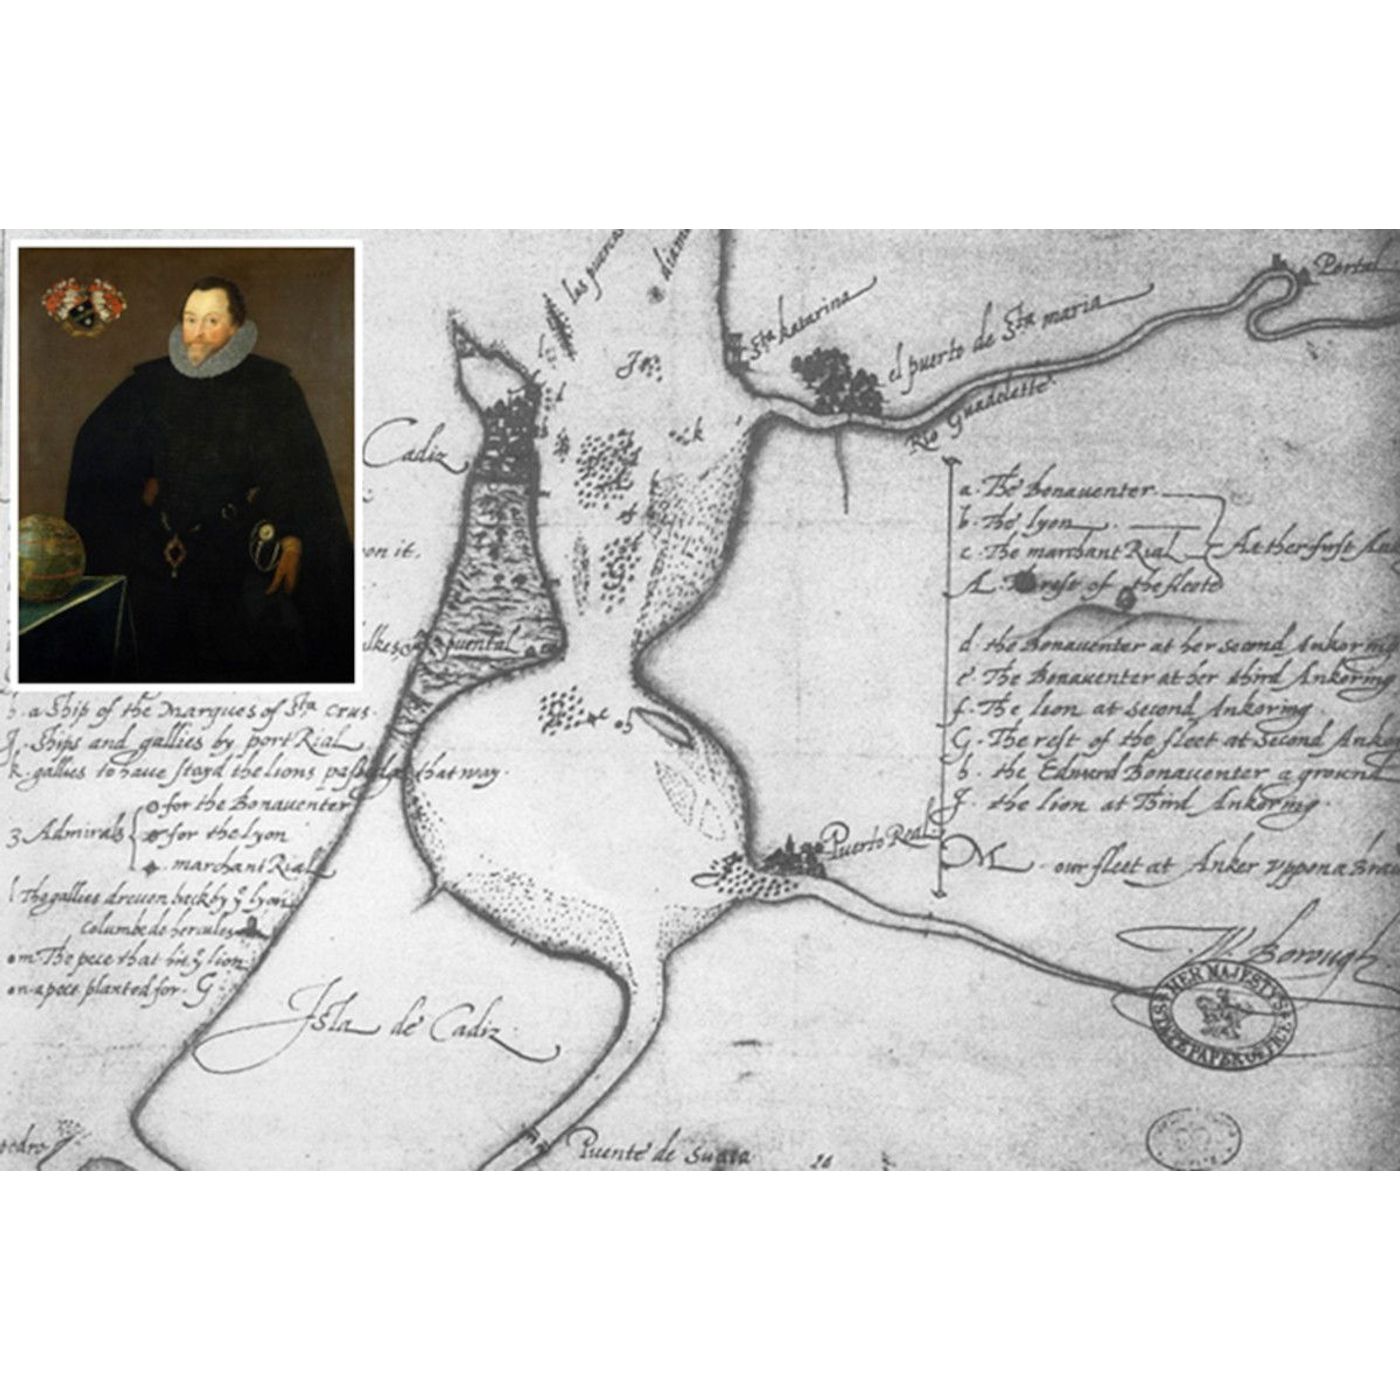 las puercas
Sta katarina
el puerto de Sta maria
Rio Guadelette
Portal
Cadiz
on it.
puental
h. a Ship of the Marques of Sta Crus.
J. Ships and gallies by port Rial
k. gallies to haue stayd the lions passage that way.
3 Admirals
for the Bonauenter
for the lyon
marchant Rial
l The gallies dreuen back by ye lyon
Columbe de hercules
m The pece that hit ye lion
n a pece planted for G
a. The Bonauenter
b. The lyon
c. The marchant Rial
At ther first
A. The rest of the fleete
d. the Bonauenter at her second Ankoring
e. The Bonauenter at her third Ankoring
f. The lion at second Ankoring
G. The rest of the fleet at second
h. the Edward Bonauenter a ground
J. the lion at Third Ankoring
M our fleet at Anker vppon a
Puerto Real
W Borough
HER MAJESTYS STATE PAPER OFFICE
Isla de Cadiz
Puente de Suaza
20